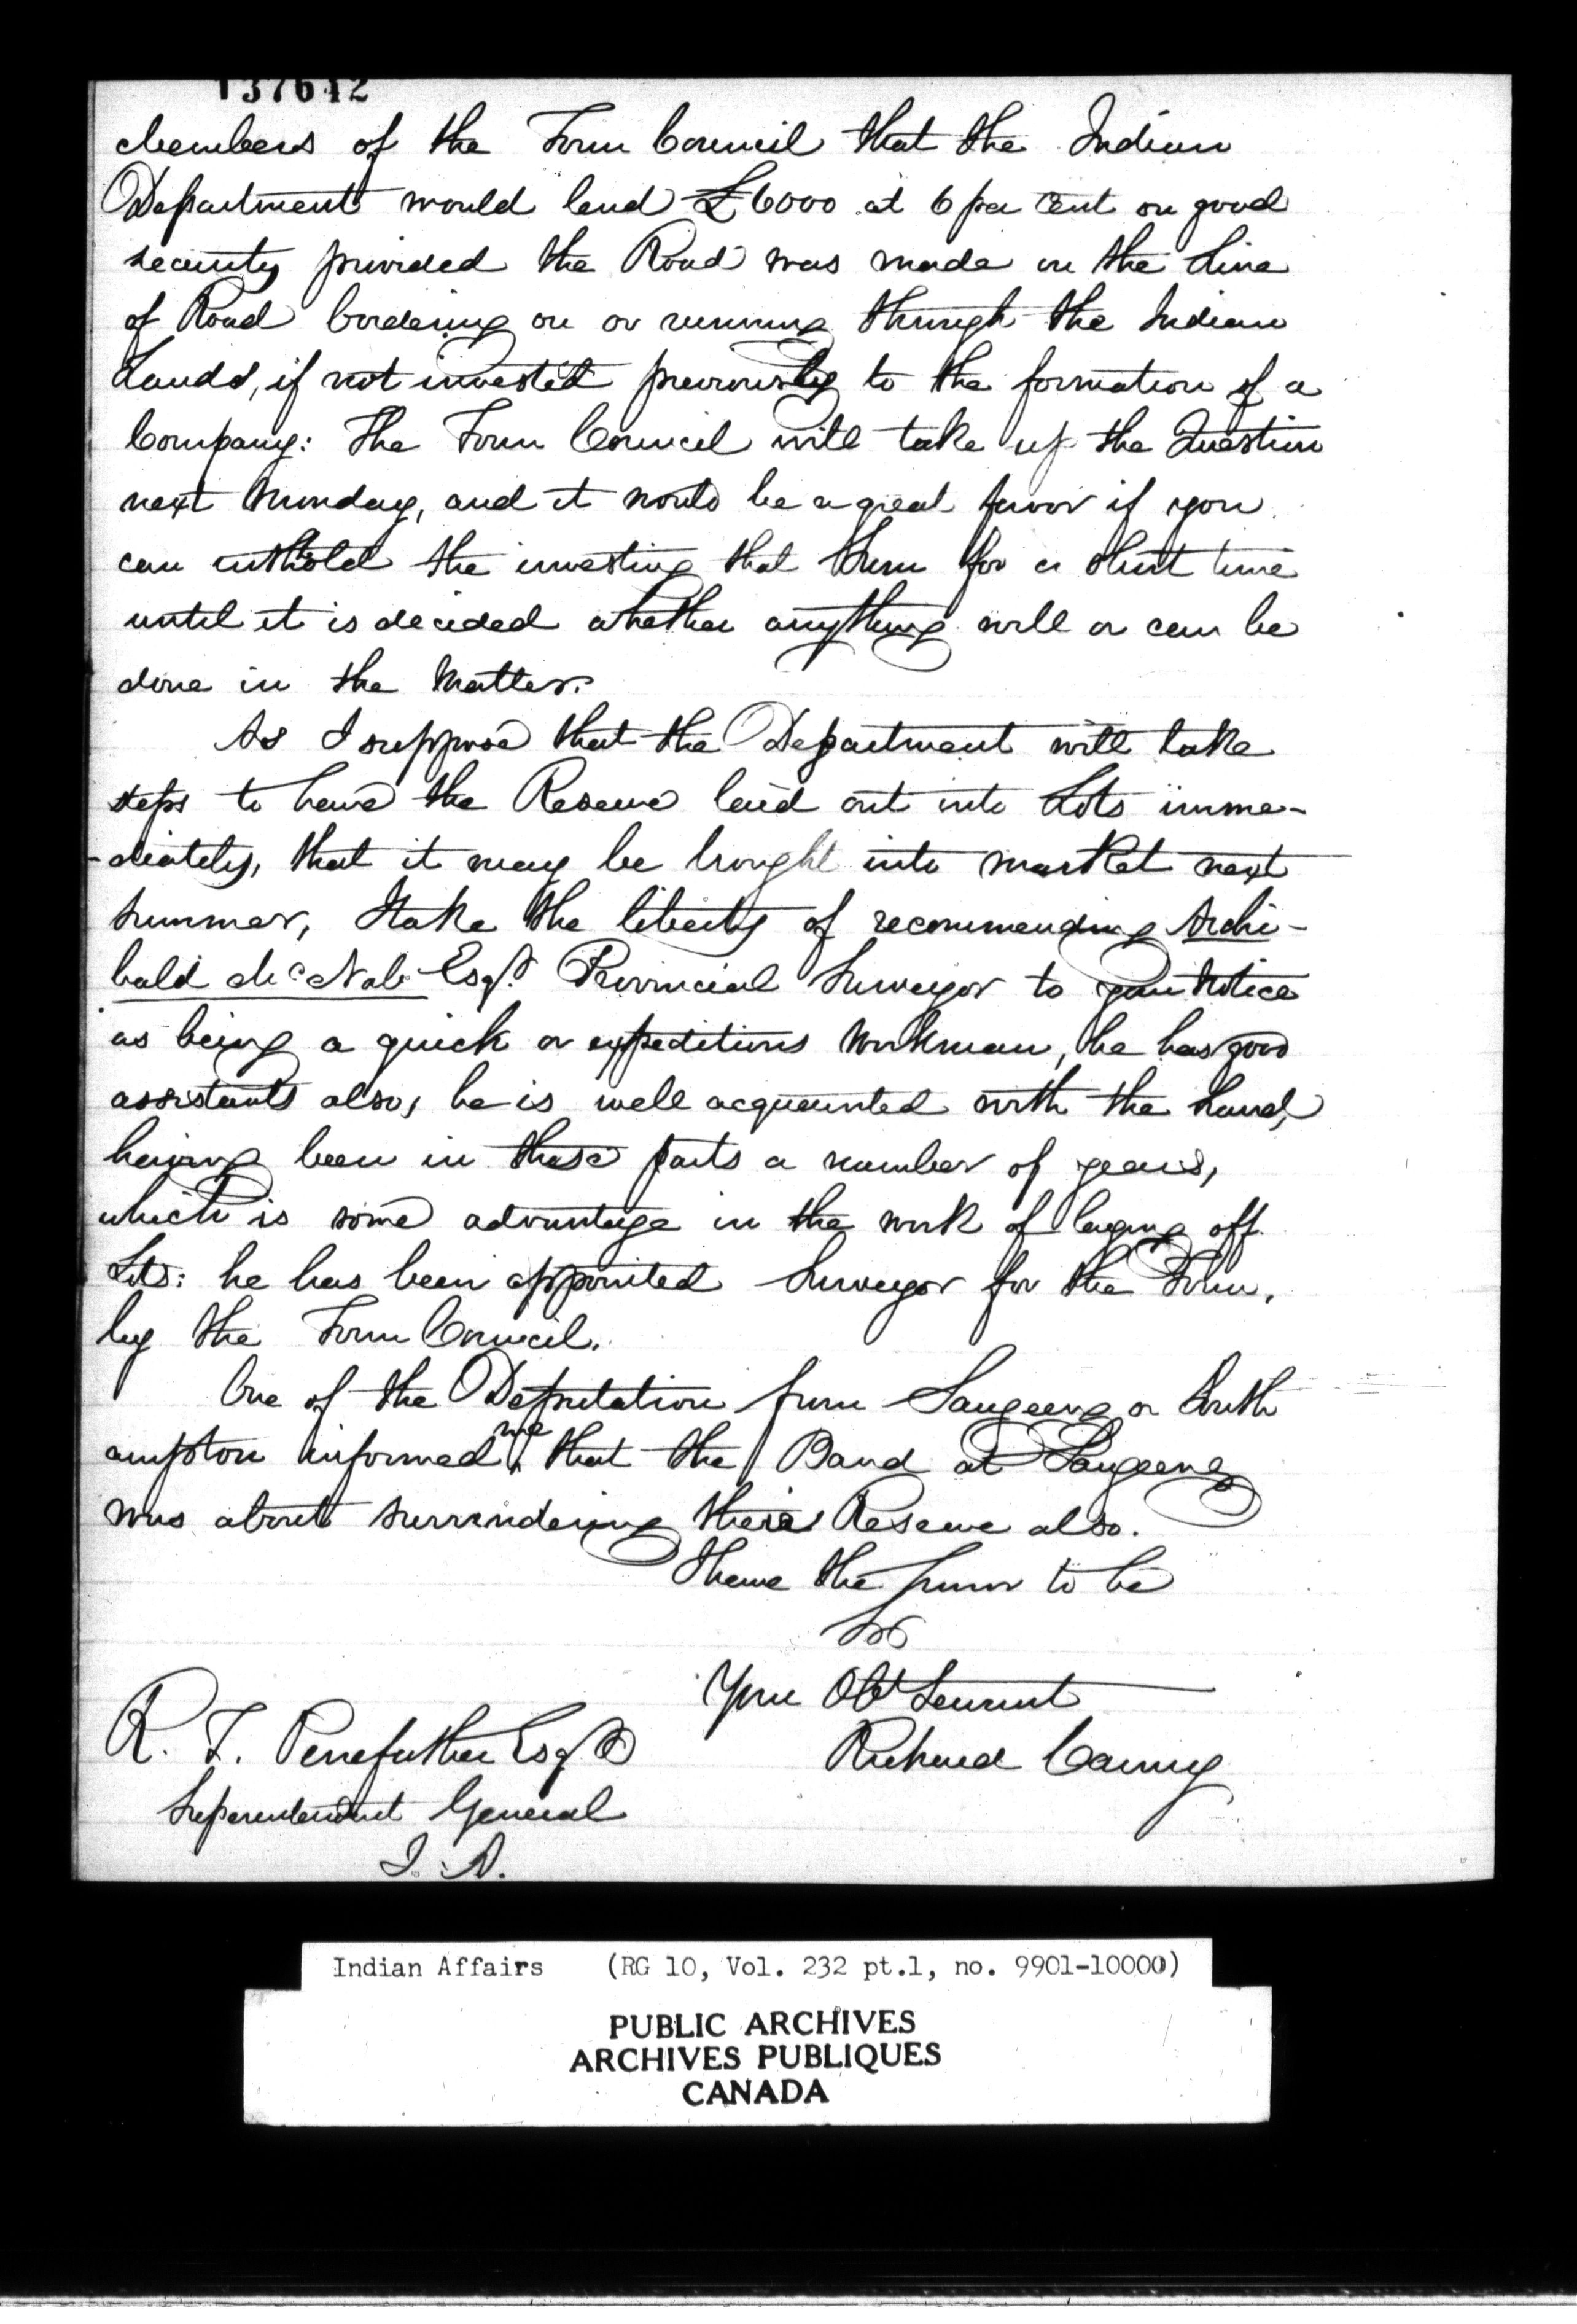 137612
Members of the Town Council that the Indian
Department would lend £6000 at 6 per Cent on good
security provided the Road was made on the Line
of Road bordering on or running through the Indian
Lands, if not invested previously to the formation of a
Company: The Town Council will take up the Question
next Monday, and it would be a great favor if you
can withold the investing that Sum for a Short time
until it is decided whether anything will or can be
done in the Matter.
As I suppose that the Department will take
steps to have the Reserve laid out into Lots imme-
-diately, that it may be brought into market next
Summer, I take the liberty of recommending Archi-
bald McNab Esqr. Provincial Surveyor to your Notice
as being a quick or expeditious Workman, he has good
assistants also, he is well acquainted with the Land,
having been in these parts a number of years,
which is some advantage in the work of laying off
Lots: he has been appointed Surveyor for the Town,
by the Town Council.
One of the Deputation from Saugeeng or South
ampton informed me that the Band at Saugeeng
was about surrendering their Reserve also.
I have the honor to be
Sir
Your Obt Servant
R. T. Pennefather Esqr
Richard Carney
Superentendent General
I. A.
Indian Affairs (RG 10, Vol. 232 pt.1, no. 9901-10000)
PUBLIC ARCHIVES
ARCHIVES PUBLIQUES
CANADA